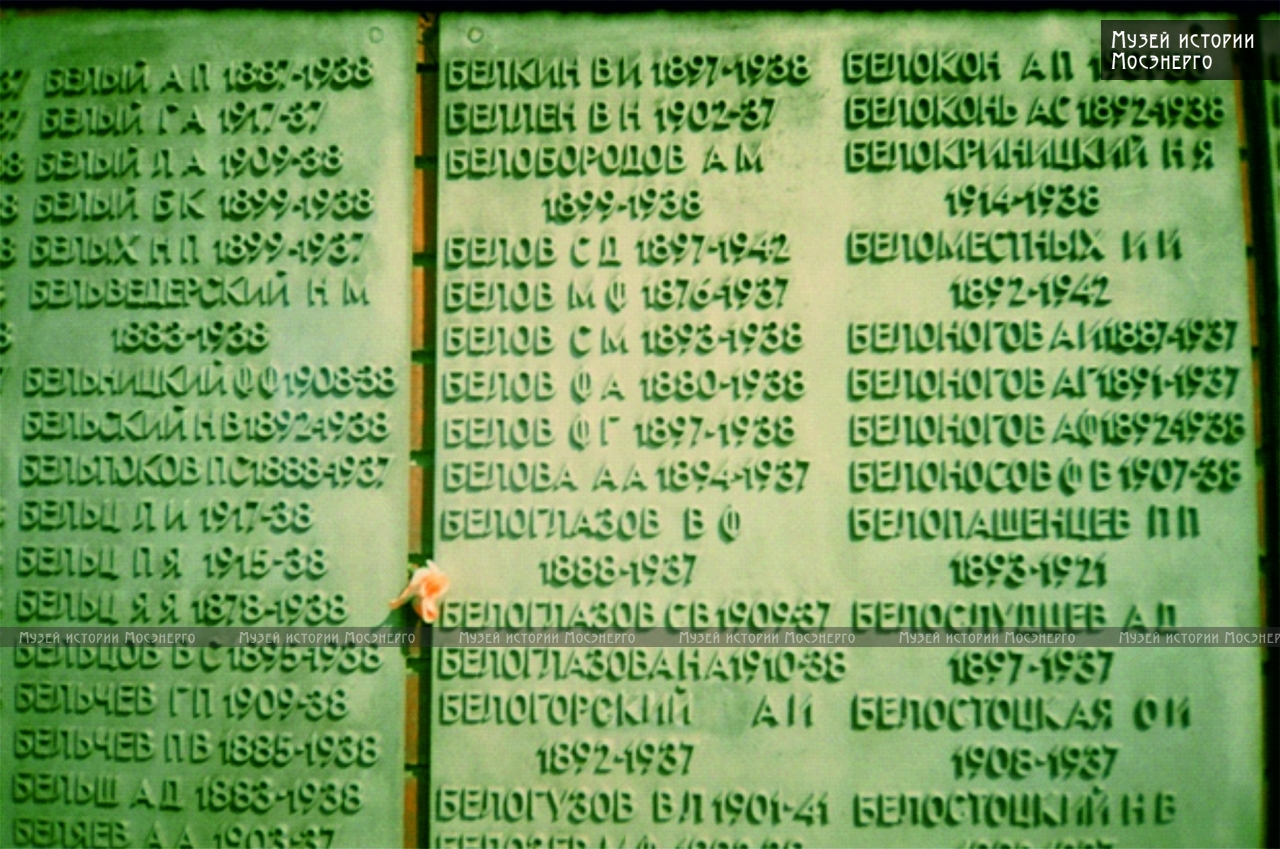 Музей истории
Мосэнерго
БЕЛЫЙ А П 1887-1938
БЕЛЫЙ Г А 1917-37
БЕЛЫЙ Л А 1909-38
БЕЛЫЙ Б К 1899-1938
БЕЛЫХ Н П 1899-1937
БЕЛЬВЕДЕРСКИЙ Н М
1883-1938
БЕЛЬНИЦКИЙ Ф Ф 1908-38
БЕЛЬСКИЙ Н В 1892-1938
БЕЛЬТЮКОВ П С 1888-1937
БЕЛЬЦ Л И 1917-38
БЕЛЬЦ П Я 1915-38
БЕЛЬЦ Я Я 1878-1938
БЕЛЬЦОВ В С 1895-1938
БЕЛЬЧЕВ Г П 1909-38
БЕЛЬЧЕВ П В 1885-1938
БЕЛЬШ А Д 1883-1938
БЕЛЯЕВ А А 1903-37
БЕЛКИН В И 1897-1938
БЕЛЛЕН В Н 1902-37
БЕЛОБОРОДОВ А М
1899-1938
БЕЛОВ С Д 1897-1942
БЕЛОВ М Ф 1876-1937
БЕЛОВ С М 1893-1938
БЕЛОВ Ф А 1880-1938
БЕЛОВ Ф Г 1897-1938
БЕЛОВА А А 1894-1937
БЕЛОГЛАЗОВ В Ф
1888-1937
БЕЛОГЛАЗОВ С В 1909-37
БЕЛОГЛАЗОВА Н А 1910-38
БЕЛОГОРСКИЙ А И
1892-1937
БЕЛОГУЗОВ В Л 1901-41
БЕЛОКОН А П
БЕЛОКОНЬ А С 1892-1938
БЕЛОКРИНИЦКИЙ Н Я
1914-1938
БЕЛОМЕСТНЫХ И И
1892-1942
БЕЛОНОГОВ А И 1887-1937
БЕЛОНОГОВ А Г 1891-1937
БЕЛОНОГОВ А Ф 1892-1938
БЕЛОНОСОВ Ф В 1907-38
БЕЛОПАШЕНЦЕВ П П
1893-1921
БЕЛОСЛУДЦЕВ А Д
1897-1937
БЕЛОСТОЦКАЯ О И
1908-1937
БЕЛОСТОЦКИЙ Н В
Музей истории Мосэнерго Музей истории Мосэнерго Музей истории Мосэнерго Музей истории Мосэнерго Музей истории Мосэнерго Музей истории Мосэнерго